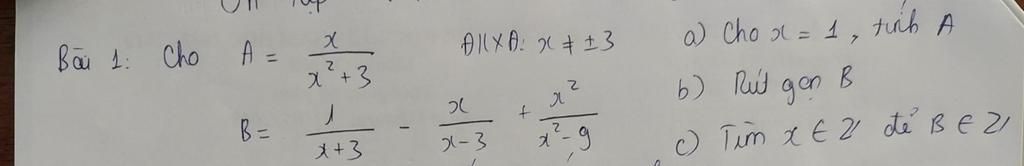 Ôn tập
Bài 1: Cho A = x / (x² + 3) ĐKXĐ: x ≠ ±3
B = 1 / (x + 3) - x / (x - 3) + x² / (x² - 9)
a) Cho x = 1, tính A
b) Rút gọn B
c) Tìm x ∈ Z để B ∈ Z